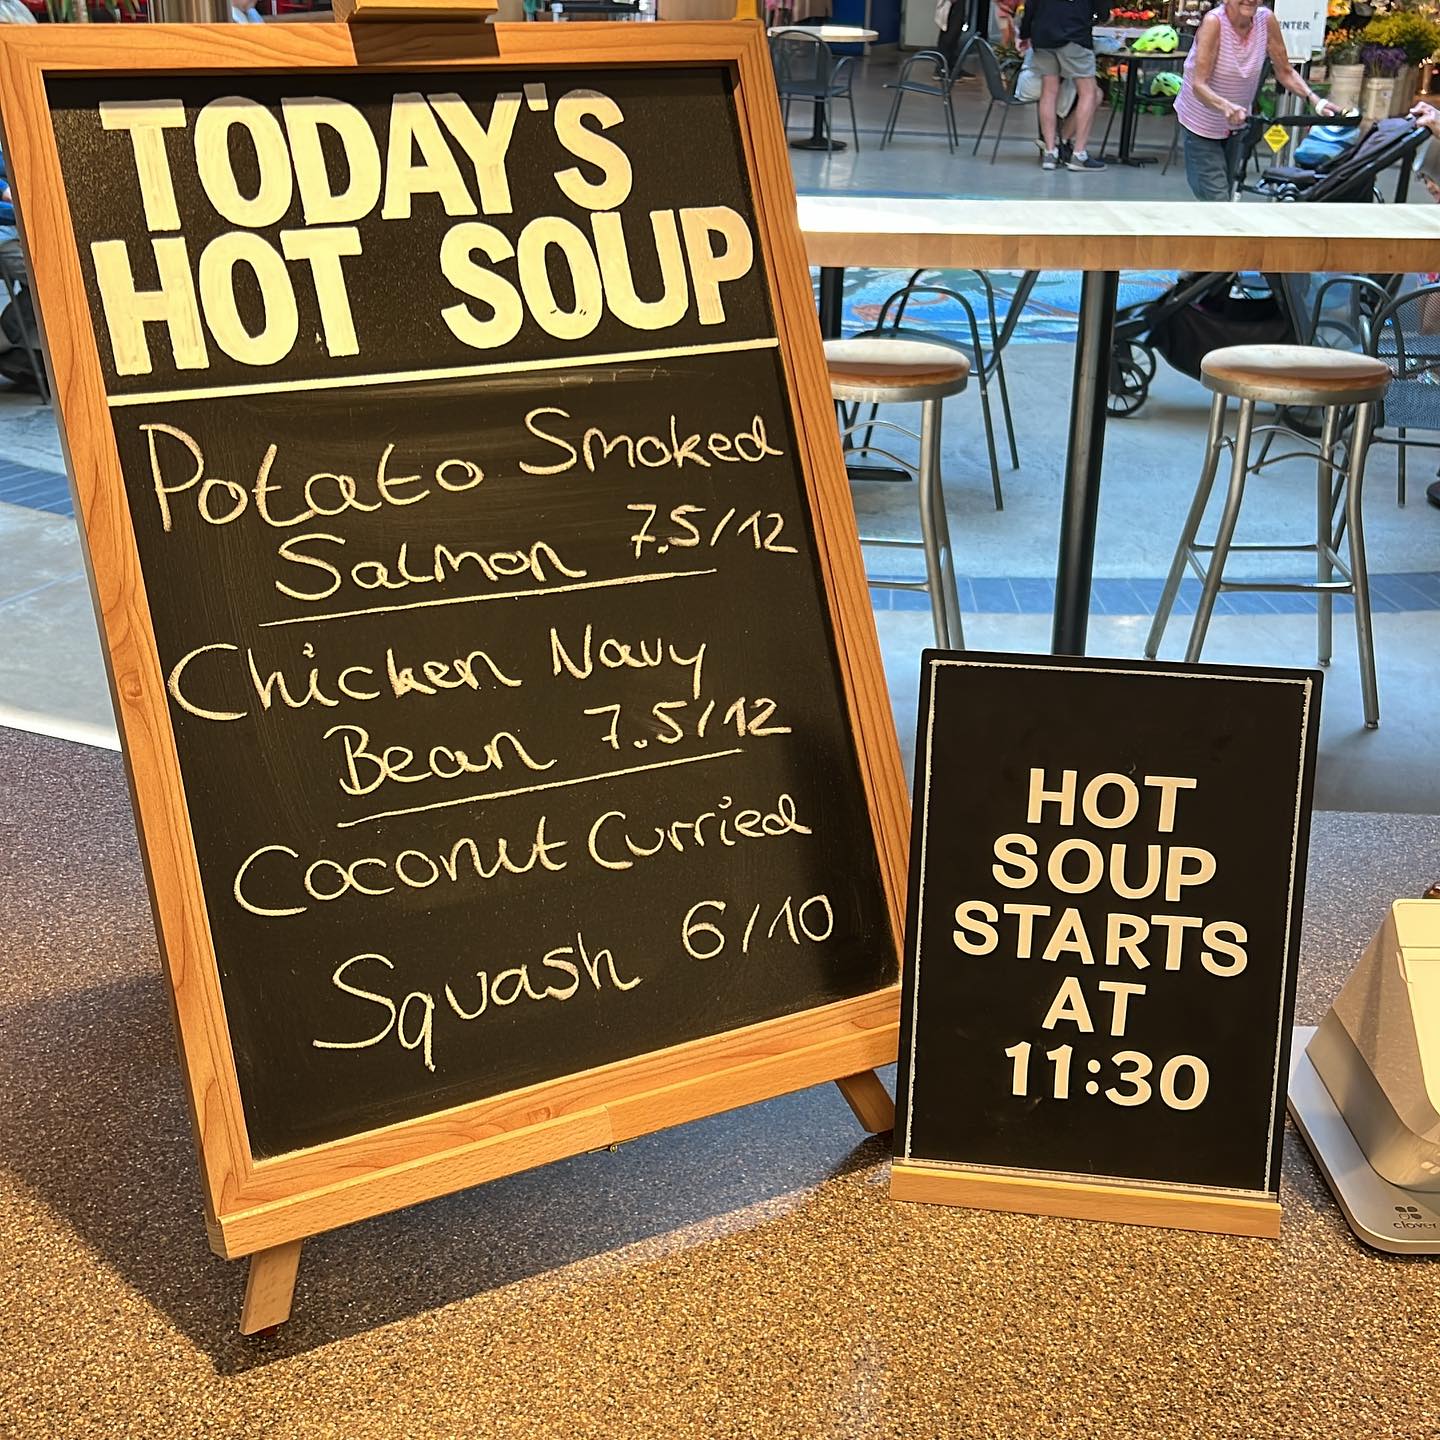 TODAY'S
HOT SOUP
Potato Smoked
Salmon 7.5/12
Chicken Navy
Bean 7.5/12
Coconut Curried
Squash 6/10
HOT
SOUP
STARTS
AT
11:30
clover